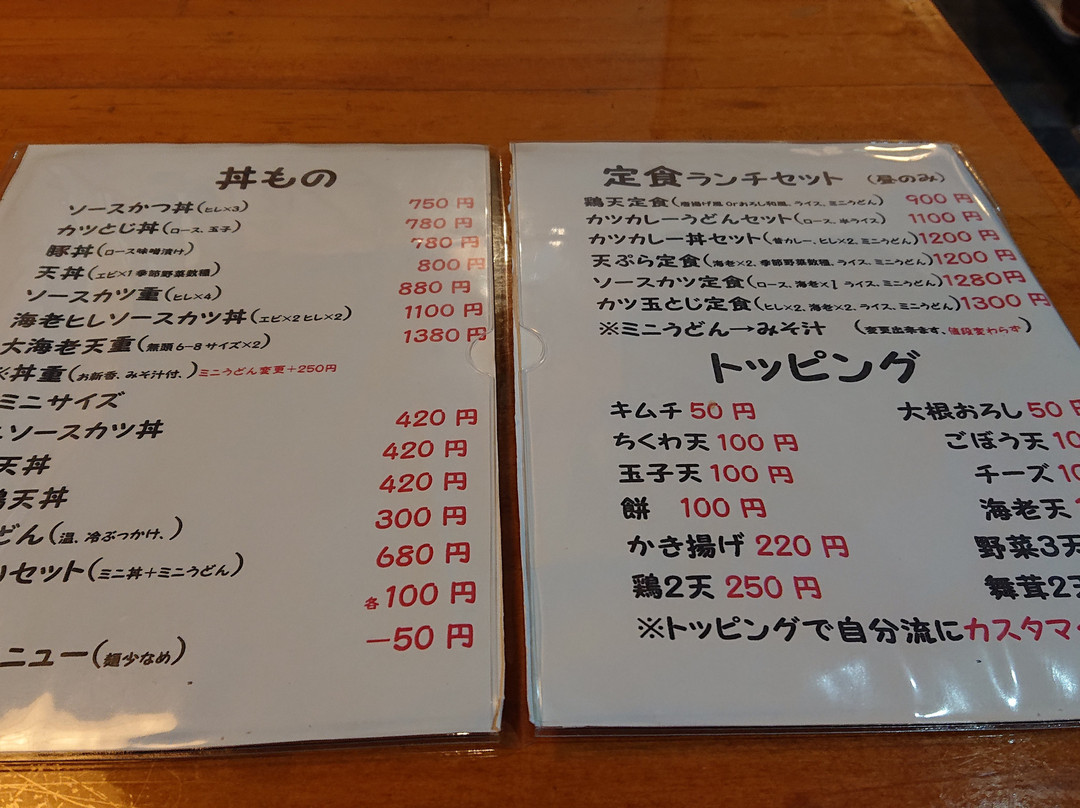 丼もの
ソースかつ丼(ヒレ×3) 750 円
カツとじ丼(ロース、玉子) 780 円
豚丼(ロース味噌漬け) 780 円
天丼(エビ×1 季節野菜数種) 800 円
ソースカツ重(ヒレ×4) 880 円
海老ヒレソースカツ丼(エビ×2 ヒレ×2) 1100 円
大海老天重(無頭6-8サイズ×2) 1380 円
※丼重(お新香、みそ汁付、)ミニうどん変更+250円
ミニサイズ
ソースカツ丼 420 円
天丼 420 円
鶏天丼 420 円
どん(温、冷ぶっかけ、) 300 円
セット(ミニ丼+ミニうどん) 680 円
各100 円
ニュー(麺少なめ) -50 円
定食ランチセット (昼のみ)
鶏天定食(唐揚げ風 orおろし和風、ライス、ミニうどん) 900 円
カツカレーうどんセット(ロース、半ライス) 1100 円
カツカレー丼セット(昔カレー、ヒレ×2、ミニうどん) 1200 円
天ぷら定食(海老×2、季節野菜数種、ライス、ミニうどん) 1200 円
ソースカツ定食(ロース、海老×1 ライス、ミニうどん) 1280円
カツ玉とじ定食(ヒレ×2、海老×2、ライス、ミニうどん) 1300 円
※ミニうどん→みそ汁 (変更出来ます、値段変わらず)
トッピング
キムチ 50 円 大根おろし 50 円
ちくわ天 100 円 ごぼう天 10
玉子天 100 円 チーズ 10
餅 100 円 海老天
かき揚げ 220 円 野菜3天
鶏2天 250 円 舞茸2天
※トッピングで自分流にカスタマ